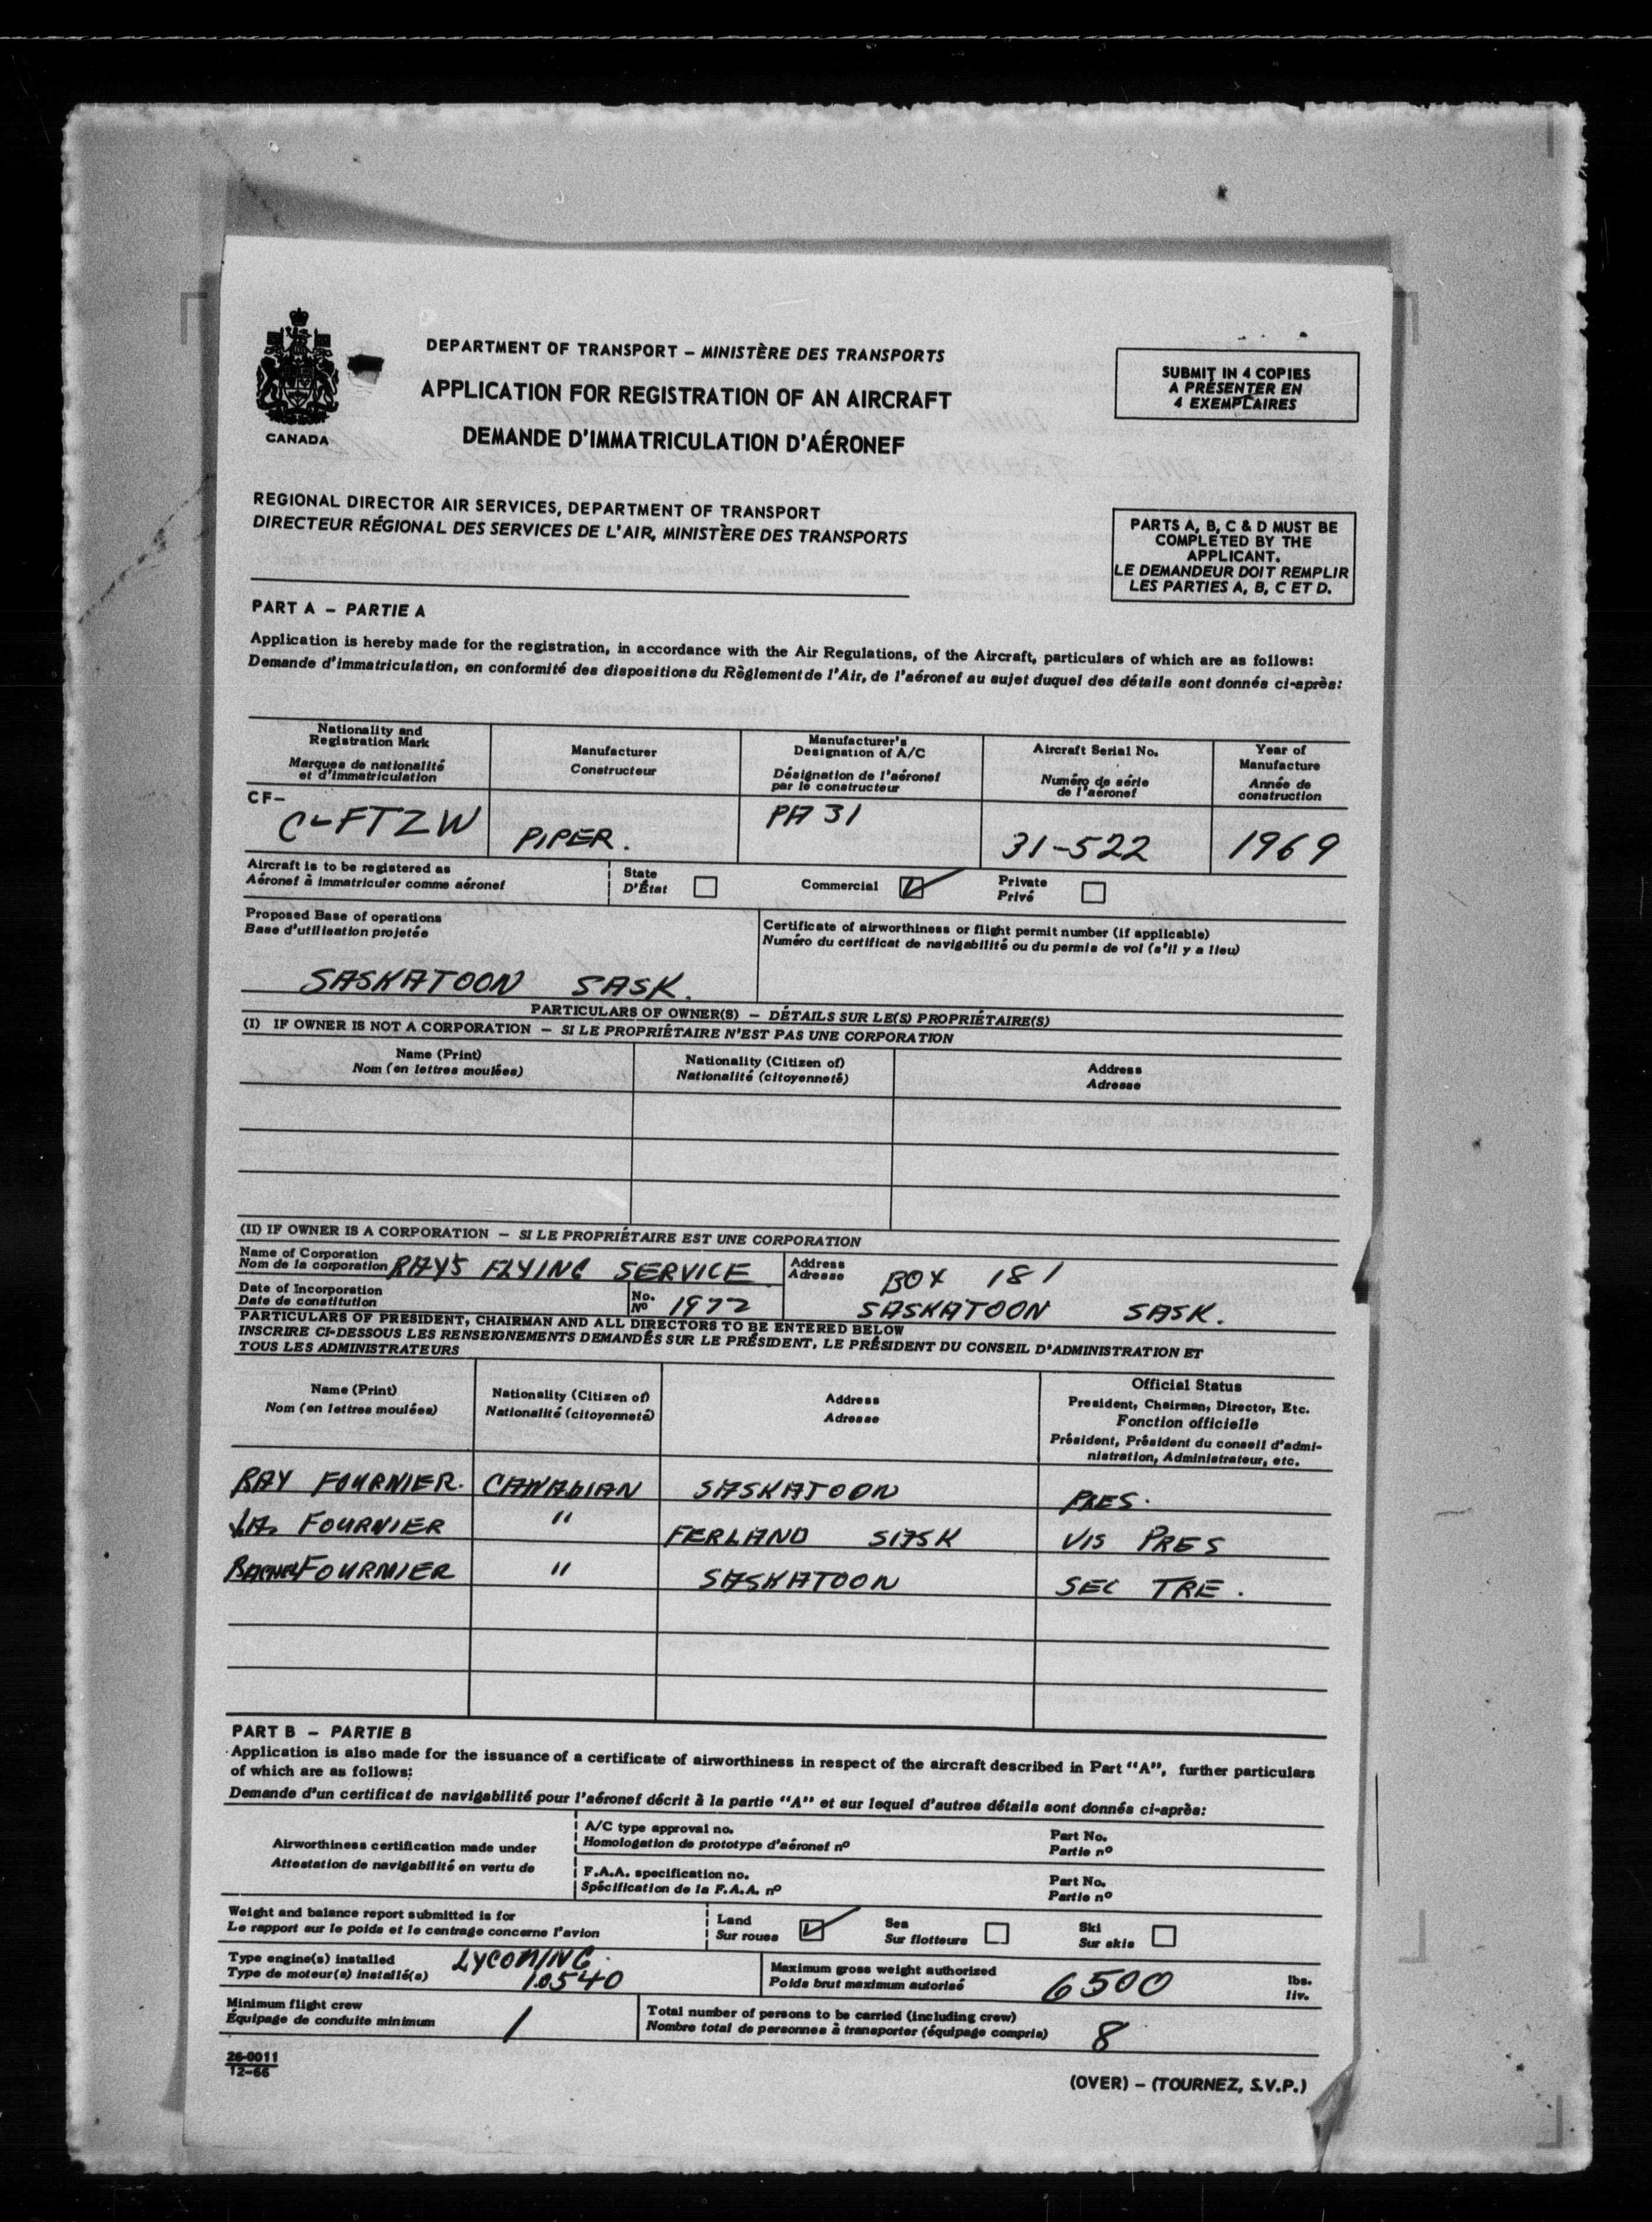 CANADA
DEPARTMENT OF TRANSPORT – MINISTÈRE DES TRANSPORTS
APPLICATION FOR REGISTRATION OF AN AIRCRAFT
DEMANDE D'IMMATRICULATION D'AÉRONEF
SUBMIT IN 4 COPIES
A PRÉSENTER EN
4 EXEMPLAIRES
REGIONAL DIRECTOR AIR SERVICES, DEPARTMENT OF TRANSPORT
DIRECTEUR RÉGIONAL DES SERVICES DE L'AIR, MINISTÈRE DES TRANSPORTS
PARTS A, B, C & D MUST BE
COMPLETED BY THE
APPLICANT.
LE DEMANDEUR DOIT REMPLIR
LES PARTIES A, B, C ET D.
PART A – PARTIE A
Application is hereby made for the registration, in accordance with the Air Regulations, of the Aircraft, particulars of which are as follows:
Demande d'immatriculation, en conformité des dispositions du Règlement de l'Air, de l'aéronef au sujet duquel des détails sont donnés ci-après:
Nationality and
Registration Mark
Marques de nationalité
et d'immatriculation
Manufacturer
Constructeur
Manufacturer's
Designation of A/C
Désignation de l'aéronef
par le constructeur
Aircraft Serial No.
Numéro de série
de l'aéronef
Year of
Manufacture
Année de
construction
CF–
C-FTZW
PIPER.
PA 31
31-522
1969
Aircraft is to be registered as
Aéronef à immatriculer comme aéronef
State
D'État
Commercial
Private
Privé
Proposed Base of operations
Base d'utilisation projetée
SASKATOON SASK.
Certificate of airworthiness or flight permit number (if applicable)
Numéro du certificat de navigabilité ou du permis de vol (s'il y a lieu)
PARTICULARS OF OWNER(S) – DÉTAILS SUR LE(S) PROPRIÉTAIRE(S)
(I) IF OWNER IS NOT A CORPORATION – SI LE PROPRIÉTAIRE N'EST PAS UNE CORPORATION
Name (Print)
Nom (en lettres moulées)
Nationality (Citizen of)
Nationalité (citoyenneté)
Address
Adresse
(II) IF OWNER IS A CORPORATION – SI LE PROPRIÉTAIRE EST UNE CORPORATION
Name of Corporation
Nom de la corporation RAYS FLYING SERVICE
Address
Adresse
BOX 181
SASKATOON SASK.
Date of Incorporation
Date de constitution
No.
Nº 1972
PARTICULARS OF PRESIDENT, CHAIRMAN AND ALL DIRECTORS TO BE ENTERED BELOW
INSCRIRE CI-DESSOUS LES RENSEIGNEMENTS DEMANDÉS SUR LE PRÉSIDENT, LE PRÉSIDENT DU CONSEIL D'ADMINISTRATION ET
TOUS LES ADMINISTRATEURS
Name (Print)
Nom (en lettres moulées)
Nationality (Citizen of)
Nationalité (citoyenneté)
Address
Adresse
Official Status
President, Chairman, Director, Etc.
Fonction officielle
Président, Président du conseil d'admi-
nistration, Administrateur, etc.
RAY FOURNIER. CANADIAN SASKATOON PRES.
FOURNIER " FERLAND SASK VIS PRES
FOURNIER " SASKATOON SEC TRE.
PART B – PARTIE B
Application is also made for the issuance of a certificate of airworthiness in respect of the aircraft described in Part "A", further particulars
of which are as follows:
Demande d'un certificat de navigabilité pour l'aéronef décrit à la partie "A" et sur lequel d'autres détails sont donnés ci-après:
Airworthiness certification made under
Attestation de navigabilité en vertu de
A/C type approval no.
Homologation de prototype d'aéronef nº
Part No.
Partie nº
F.A.A. specification no.
Spécification de la F.A.A. nº
Part No.
Partie nº
Weight and balance report submitted is for
Le rapport sur le poids et le centrage concerne l'avion
Land
Sur roues
Sea
Sur flotteurs
Ski
Sur skis
Type engine(s) installed
Type de moteur(s) installé(s)
LYCOMING
10540
Maximum gross weight authorized
Poids brut maximum autorisé
6500
lbs.
liv.
Minimum flight crew
Équipage de conduite minimum
1
Total number of persons to be carried (including crew)
Nombre total de personnes à transporter (équipage compris)
8
26-0011
12-66
(OVER) – (TOURNEZ, S.V.P.)